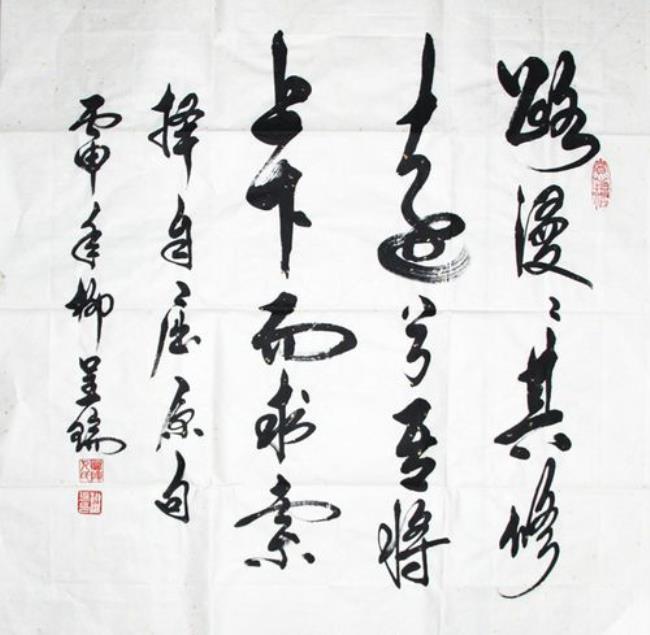 路漫〻其修
遠兮吾将
上下而求索
择自屈原句
丙申年柳呈瑞